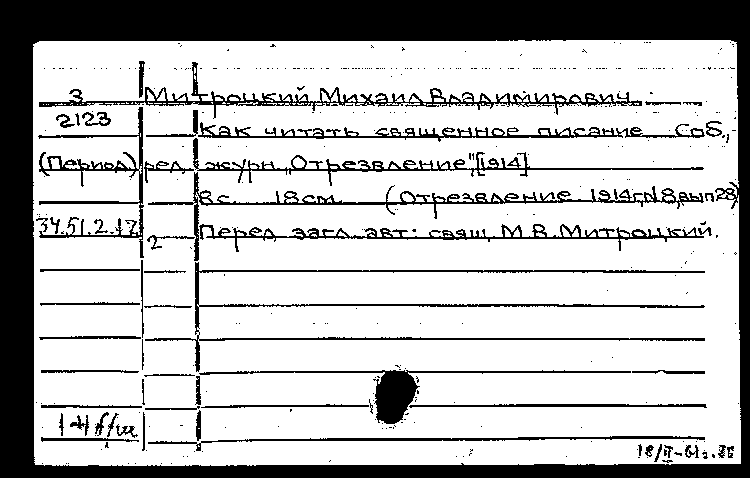 З Митроцкий, Михаил Владимирович.
2123 Как читать священное писание Соб.,
(Период) ред. журн. „Отрезвление", [1914]
8 с. 18 см. (Отрезвление 1914г, N 8, вып 28)
34.51.2.17 2 Перед загл. авт: свящ. М.В. Митроцкий.
18/II-61г.